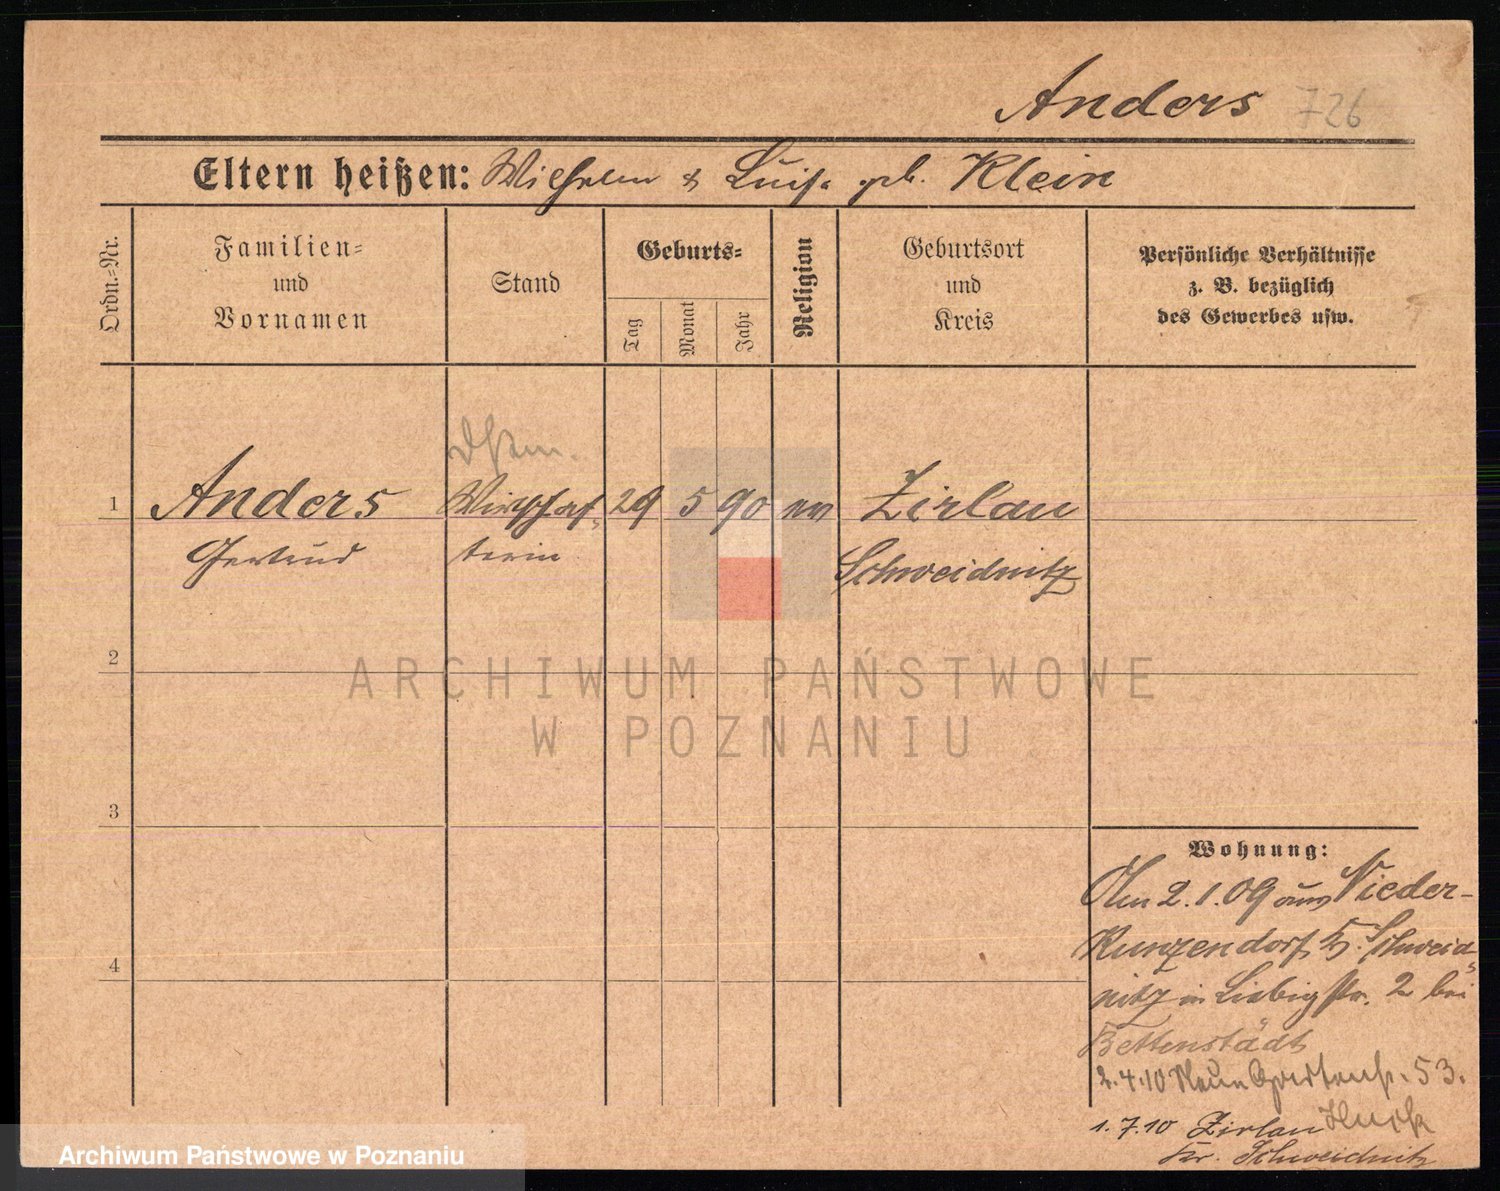 Anders 726
Eltern heißen: Wilhelm & Luise geb. Klein
Ordn.=Nr.
Familien=
und
Vornamen
Stand
Geburts=
Tag
Monat
Jahr
Religion
Geburtsort
und
Kreis
Persönliche Verhältnisse
z. B. bezüglich
des Gewerbes usw.
1 Anders Wirtschaf- 29 5 90 ev Zirlau
Gertrud terin Schweidnitz
2
ARCHIWUM PAŃSTWOWE
W POZNANIU
3
4
Wohnung:
Am 2.1.09 aus Nieder-
Kunzendorf Kr. Schweid-
nitz in Liebigstr. 2 bei
Bettenstädt
2.4.10 Neue Gartenstr. 53.
1.7.10 Zirlau
Kr. Schweidnitz
Archiwum Państwowe w Poznaniu